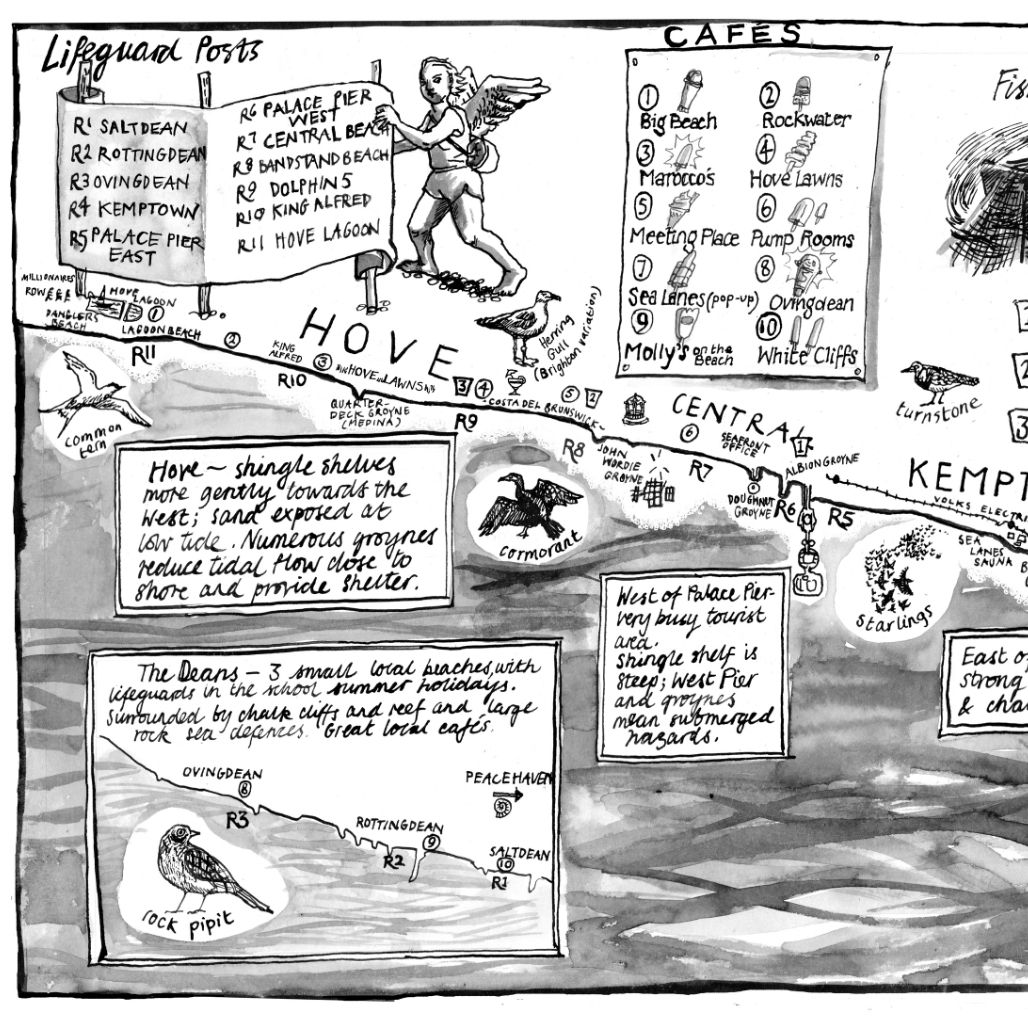 Lifeguard Posts
R1 SALTDEAN
R2 ROTTINGDEAN
R3 OVINGDEAN
R4 KEMPTOWN
R5 PALACE PIER
EAST
R6 PALACE PIER
WEST
R7 CENTRAL BEACH
R8 BANDSTAND BEACH
R9 DOLPHINS
R10 KING ALFRED
R11 HOVE LAGOON
CAFÉS
1 Big Beach
2 Rockwater
3 Marocco's
4 Hove Lawns
5 Meeting Place
6 Pump Rooms
7 Sea Lanes (pop-up)
8 Ovingdean
9 Molly's on the
Beach
10 White Cliffs
Fis
1
2
3
MILLIONAIRES
ROW
HOVE
LAGOON
DANGLERS
BEACH
1
LAGOON BEACH
R11
2
KING
ALFRED
R10
3
HOVE LAWNS
HOVE
QUARTER-
DECK GROYNE
(MEDINA)
3
4
R9
COSTA DEL BRUNSWICK
5
2
Herring
Gull
(Brighton variation)
common
tern
cormorant
R8
JOHN
WORDIE
GROYNE
CENTRAL
6
SEAFRONT
OFFICE
R7
1
ALBION GROYNE
DOUGHNUT
GROYNE
R6
R5
turnstone
KEMPT
VOLKS ELECTRI
SEA
LANES
SAUNA
B
starlings
Hove ~ shingle shelves
more gently towards the
West; sand exposed at
low tide. Numerous groynes
reduce tidal flow close to
shore and provide shelter.
West of Palace Pier-
very busy tourist
area.
Shingle shelf is
steep; West Pier
and groynes
mean submerged
hazards.
East o
strong
& cha
The Deans – 3 small local beaches, with
lifeguards in the school summer holidays.
Surrounded by chalk cliffs and reef and large
rock sea defences. Great local cafés.
OVINGDEAN
8
R3
ROTTINGDEAN
9
R2
PEACEHAVEN
SALTDEAN
10
R1
rock pipit